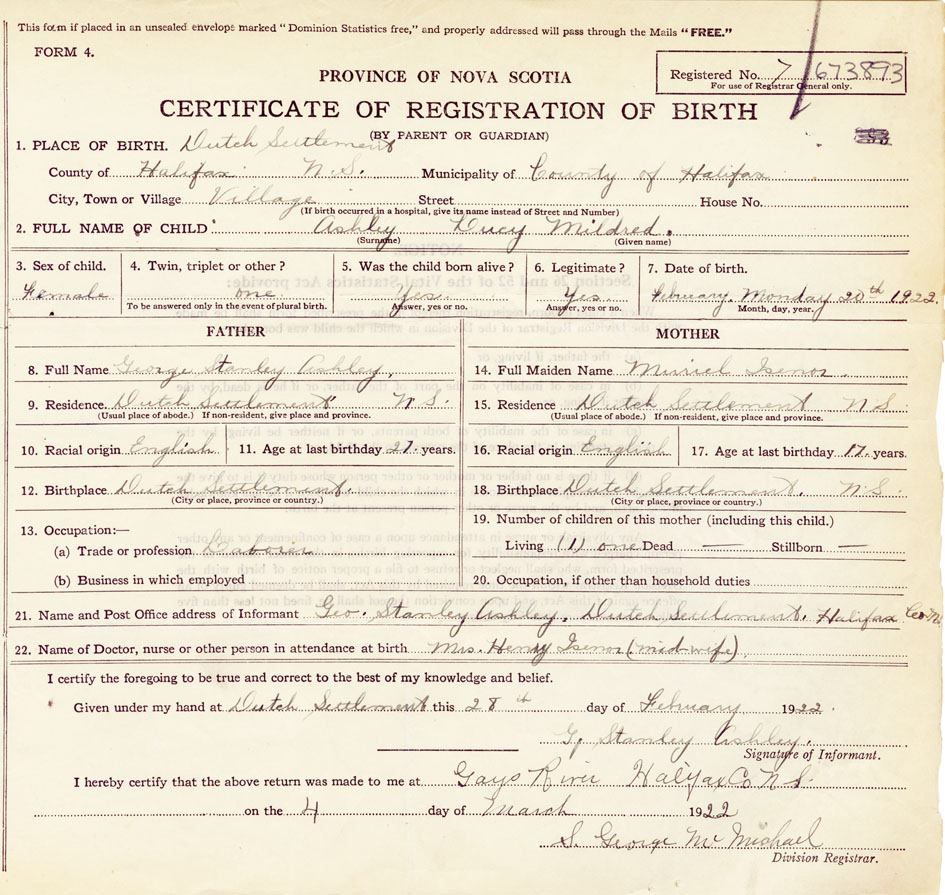 This form if placed in an unsealed envelope marked "Dominion Statistics free," and properly addressed will pass through the Mails "FREE."
FORM 4.
PROVINCE OF NOVA SCOTIA
Registered No. 7 673893
For use of Registrar General only.
CERTIFICATE OF REGISTRATION OF BIRTH
(BY PARENT OR GUARDIAN)
1. PLACE OF BIRTH. Dutch Settlement
County of Halifax N.S. Municipality of County of Halifax
City, Town or Village Village Street House No.
(If birth occurred in a hospital, give its name instead of Street and Number)
2. FULL NAME OF CHILD Ashley Lucy Mildred.
(Surname) (Given name)
3. Sex of child. 4. Twin, triplet or other? 5. Was the child born alive? 6. Legitimate? 7. Date of birth.
Female one Yes. Yes. February. Monday 20th 1922.
To be answered only in the event of plural birth. Answer, yes or no. Answer, yes or no. Month, day, year.
FATHER MOTHER
8. Full Name George Stanley Ashley. 14. Full Maiden Name Muriel Isenor.
9. Residence Dutch Settlement N.S. 15. Residence Dutch Settlement N S
(Usual place of abode.) If non-resident, give place and province. (Usual place of abode.) If non-resident, give place and province.
10. Racial origin English 11. Age at last birthday 21. years. 16. Racial origin English 17. Age at last birthday 17. years.
12. Birthplace Dutch Settlement. 18. Birthplace Dutch Settlement. N.S.
(City or place, province or country.) (City or place, province or country.)
13. Occupation:— 19. Number of children of this mother (including this child.)
(a) Trade or profession Laborer Living (1) one Dead — Stillborn —
(b) Business in which employed 20. Occupation, if other than household duties
21. Name and Post Office address of Informant Geo. Stanley Ashley. Dutch Settlement. Halifax Co
22. Name of Doctor, nurse or other person in attendance at birth Mrs. Henry Isenor (mid-wife)
I certify the foregoing to be true and correct to the best of my knowledge and belief.
Given under my hand at Dutch Settlement this 28th day of February 1922.
G. Stanley Ashley.
Signature of Informant.
I hereby certify that the above return was made to me at Gays River Halifax Co N S.
on the 4 day of March 1922
S. George Mc Michael
Division Registrar.